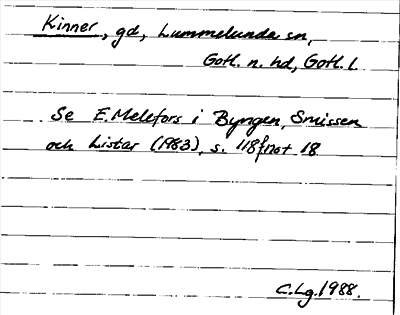 Kinner, gd, Lummelunda sn,
Gotl. n. hd, Gotl. l.
Se E. Melefors i Byngen, Smissen
och Listar (1983), s. 118 f not 18
C.Lg. 1988.